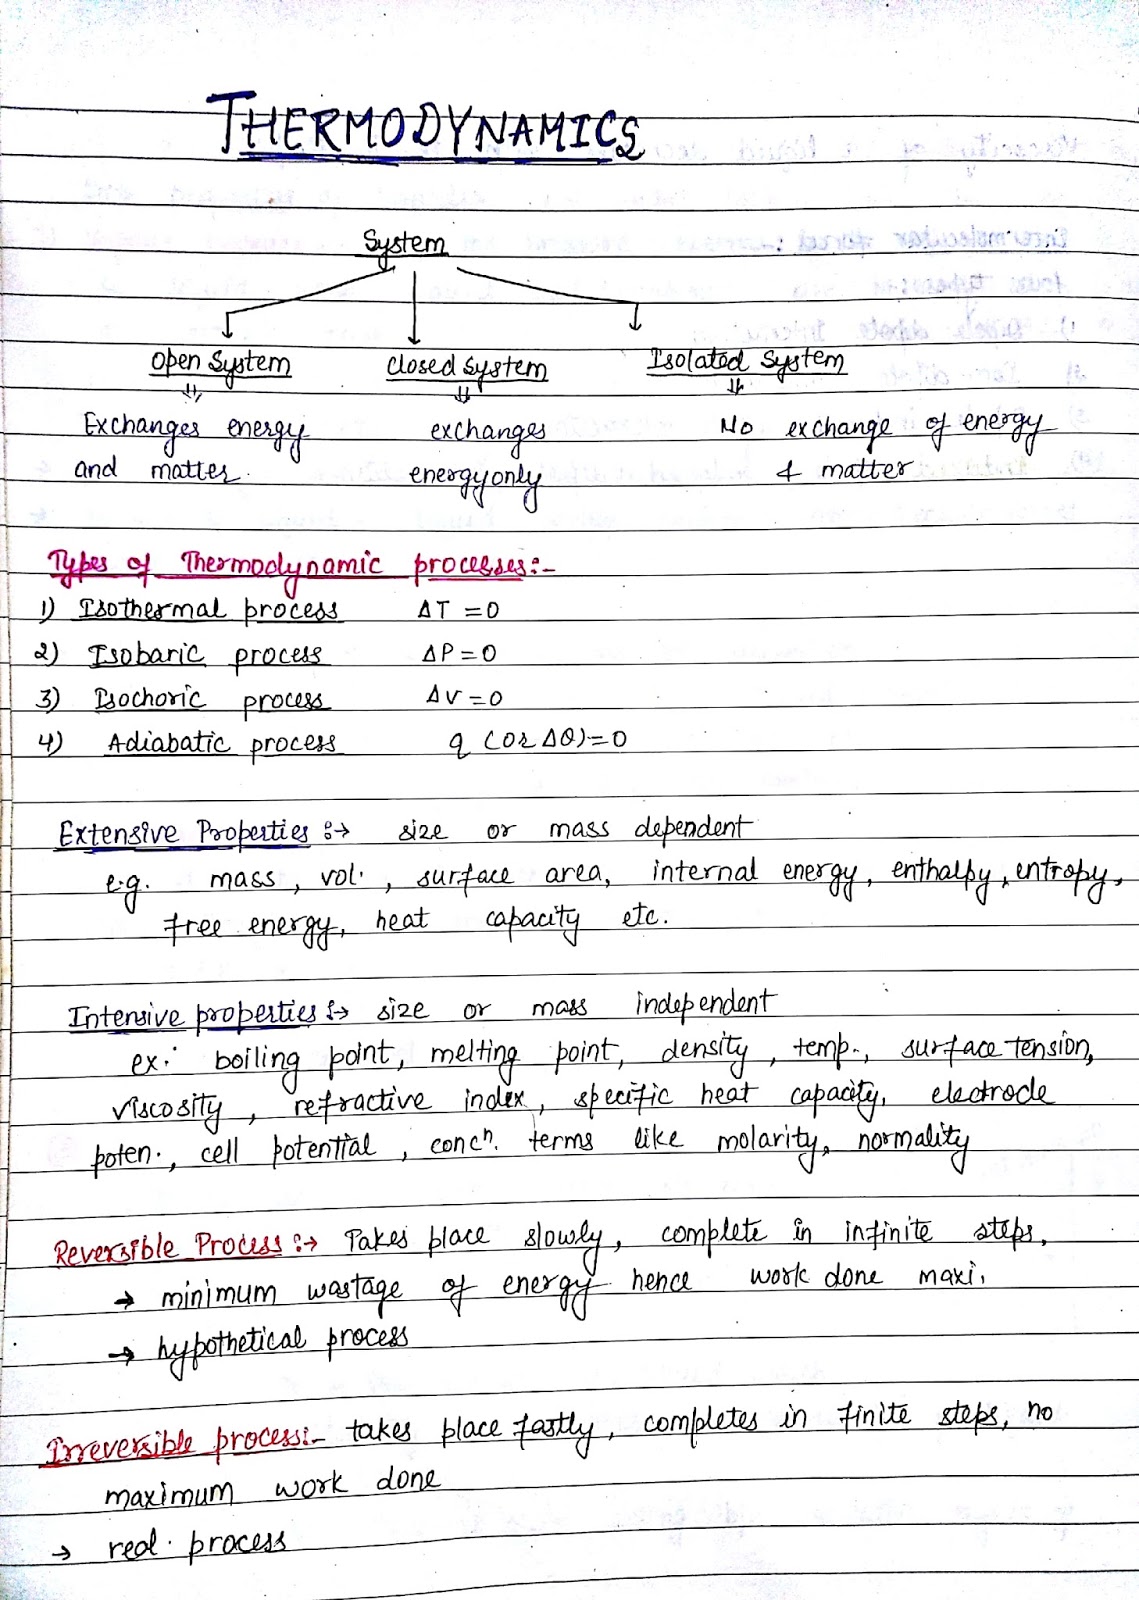 THERMODYNAMICS
System
Open System closed system Isolated System
Exchanges energy exchanges No exchange of energy
and matter. energy only & matter
Types of Thermodynamic processes:-
1) Isothermal process ΔT = 0
2) Isobaric process ΔP = 0
3) Isochoric process ΔV = 0
4) Adiabatic process q (or ΔQ) = 0
Extensive Properties :→ size or mass dependent
e.g. mass, vol., surface area, internal energy, enthalpy, entropy,
free energy, heat capacity etc.
Intensive properties :→ size or mass independent
ex: boiling point, melting point, density, temp., surface tension,
viscosity, refractive index, specific heat capacity, electrode
poten., cell potential, concⁿ. terms like molarity, normality
Reversible Process :→ Takes place slowly, complete in infinite steps,
→ minimum wastage of energy hence work done maxi.
→ hypothetical process
Irreversible process:- takes place fastly, completes in finite steps, no
maximum work done
→ real process